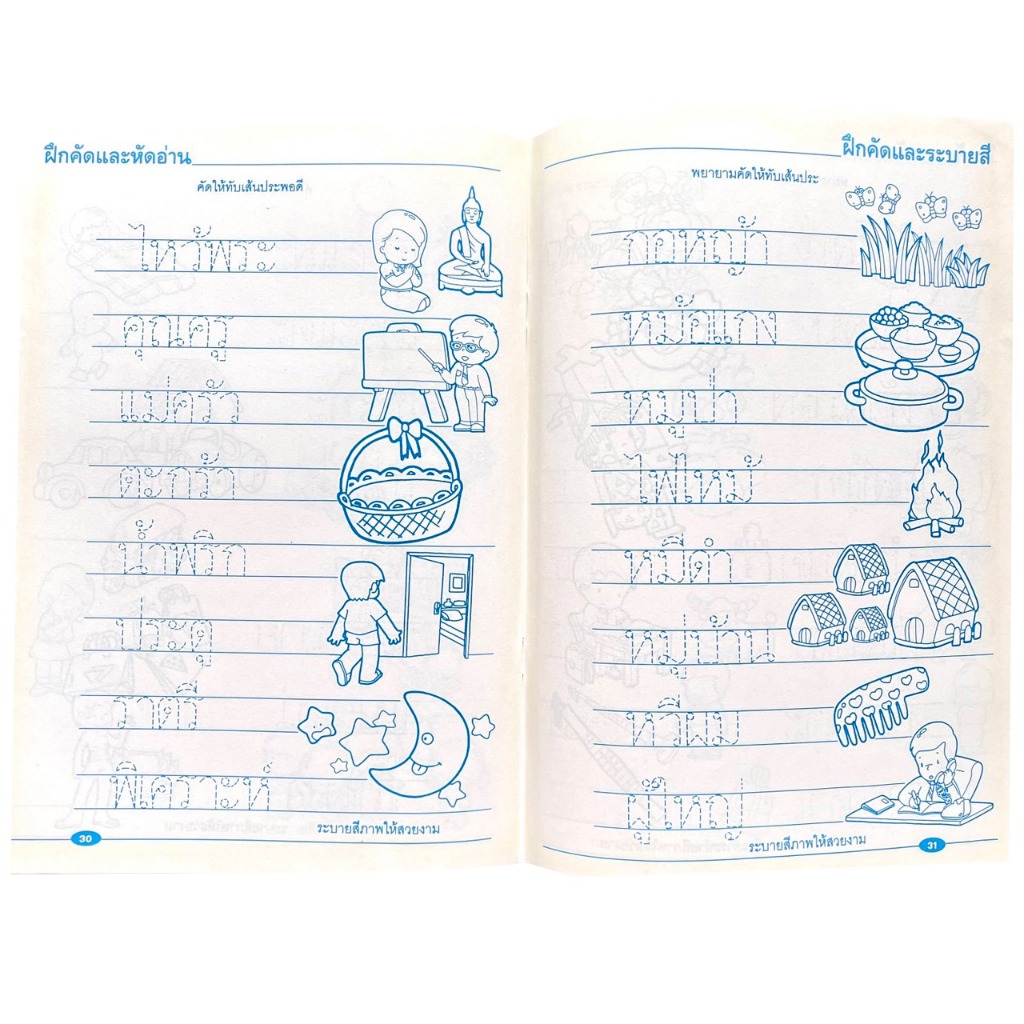 ฝึกคัดและหัดอ่าน
คัดให้ทับเส้นประพอดี
ไหว้พระ
คุณครู
แม่ครัว
ตะกร้า
น้ำพริก
ประตู
ราตรี
พิเคราะห์
ระบายสีภาพให้สวยงาม
30
ฝึกคัดและระบายสี
พยายามคัดให้ทับเส้นประ
กอหญ้า
หม้อแกง
หมูป่า
ไฟไหม้
หมีดำ
หมู่บ้าน
หวีผม
ผู้ใหญ่
ระบายสีภาพให้สวยงาม
31